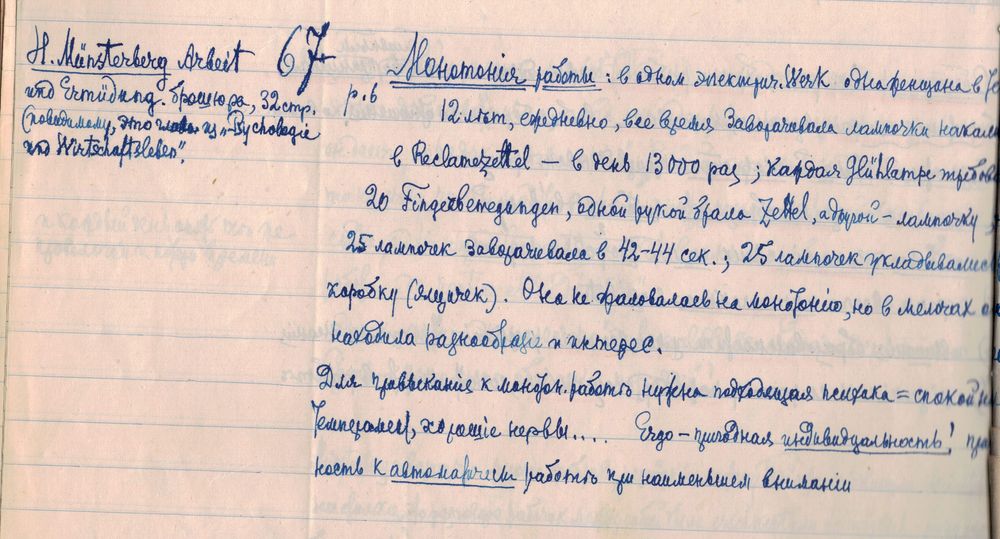 H. Münsterberg Arbeit
und Ermüdung. брошюра, 32 стр.
(повидимому, это глава из „Psychologie
und Wirtschaftsleben“.
67
p. 6
Монотонія работы: в одном электрич. Werk одна женщана в
12 лѣт, ежедневно, все время заворачивала лампочки накали
в Reclamezettel — в день 13000 раз; каждая Glühlampe требов
20 Fingerbewegungen, одной рукой брала Zettel, а другой – лампочку
25 лампочек заворачивала в 42–44 сек.; 25 лампочек укладывались
коробку (ящичек). Она не жаловалась на монотонію, но в мелочах
находила разнообразіе и интерес.
Для привыканія к монотон. работѣ нужна подходящая психика = спокойн
темперамент, хорошіе нервы.... Ergo – природная индивидуальность!
ность к автоматическ работѣ при наименьшем вниманіи